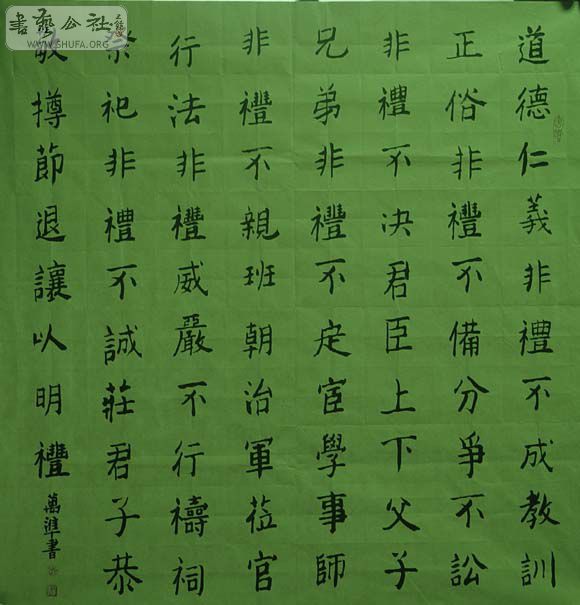 道德仁義非禮不成教訓
正俗非禮不備分爭不訟
非禮不决君臣上下父子
兄弟非禮不定宦學事師
非禮不親班朝治軍莅官
行法非禮威嚴不行禱祠
祭祀非禮不誠莊君子恭
敬撙節退讓以明禮
萬準書
書藝公社
WWW.SHUFA.ORG